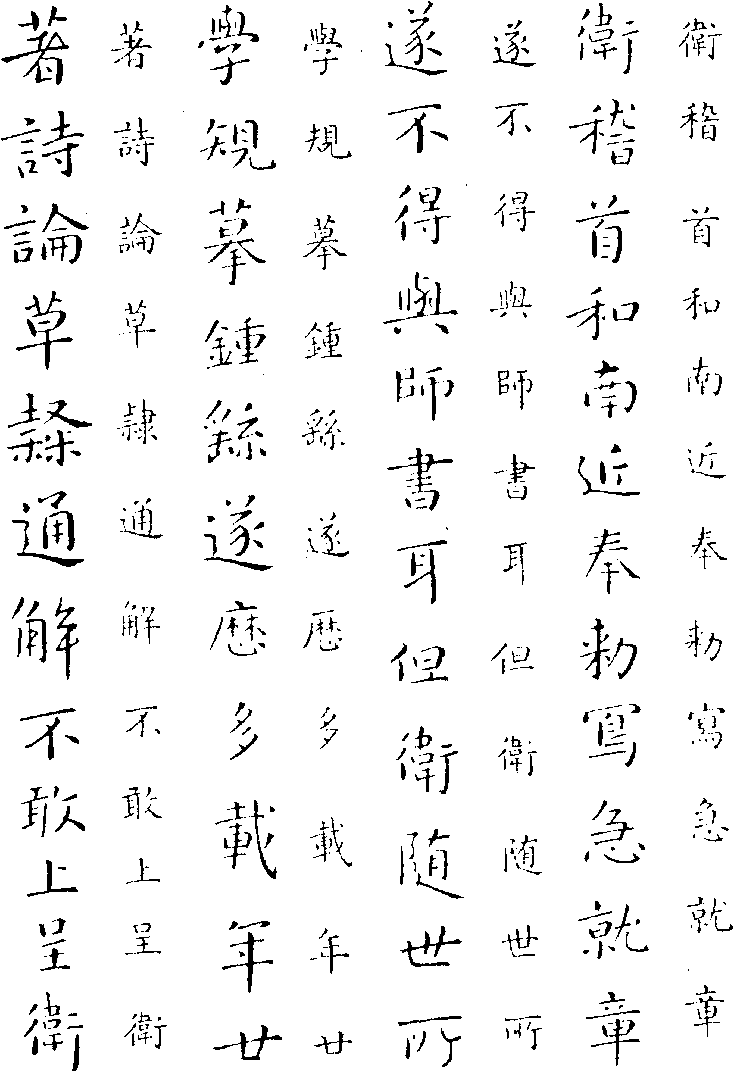 衛稽首和南近奉勅寫急就章
衛稽首和南近奉勅寫急就章
遂不得與師書耳但衛随世所
遂不得與師書耳但衛随世所
學規摹鍾繇遂厯多載年廿
學規摹鍾繇遂厯多載年廿
著詩論草隸通解不敢上呈衛
著詩論草隸通解不敢上呈衛